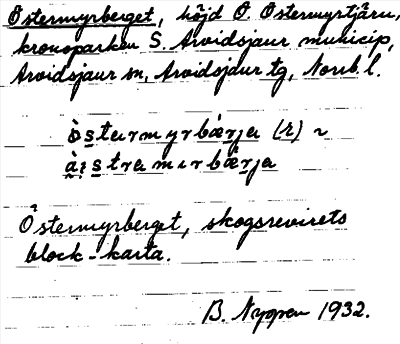 Östermyrberget, höjd Ö. Östermyrtjärn,
kronoparken S. Arvidsjaur municip,
Arvidsjaur sn, Arvidsjaur tg, Norrb. l.
òstarmyrbǽrja (r) ~
Östermyrberget, skogsrevirets
block-karta.
B. Nygren 1932.